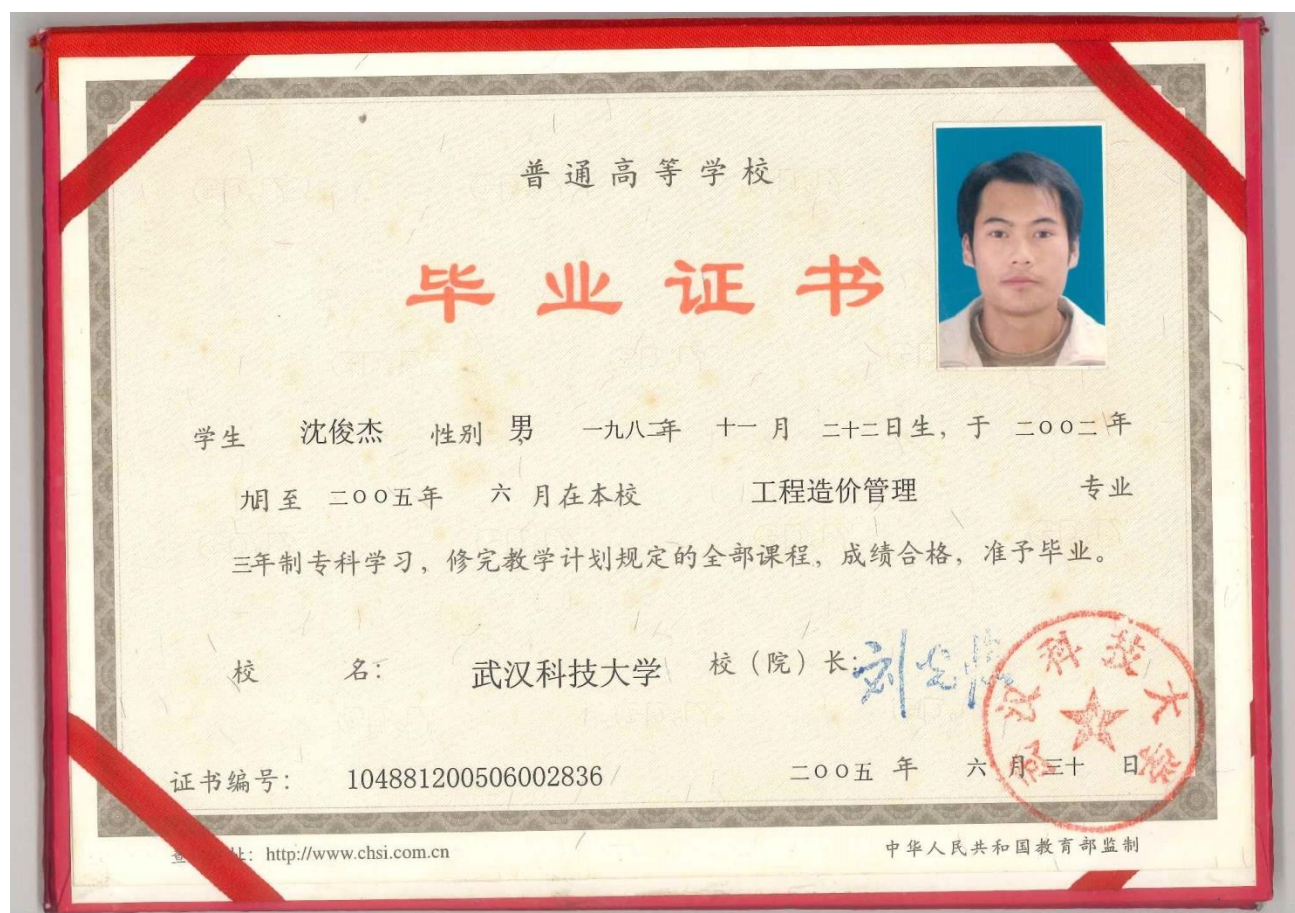 普通高等学校
毕业证书
学生 沈俊杰 性别 男, 一九八二年 十一月 二十二日生, 于 二〇〇二年
九月至 二〇〇五年 六月在本校 工程造价管理 专业
三年制专科学习, 修完教学计划规定的全部课程, 成绩合格, 准予毕业。
校 名: 武汉科技大学 校(院)长:
武汉科技大学
证书编号: 104881200506002836 二〇〇五年 六月三十日
http://www.chsi.com.cn 中华人民共和国教育部监制